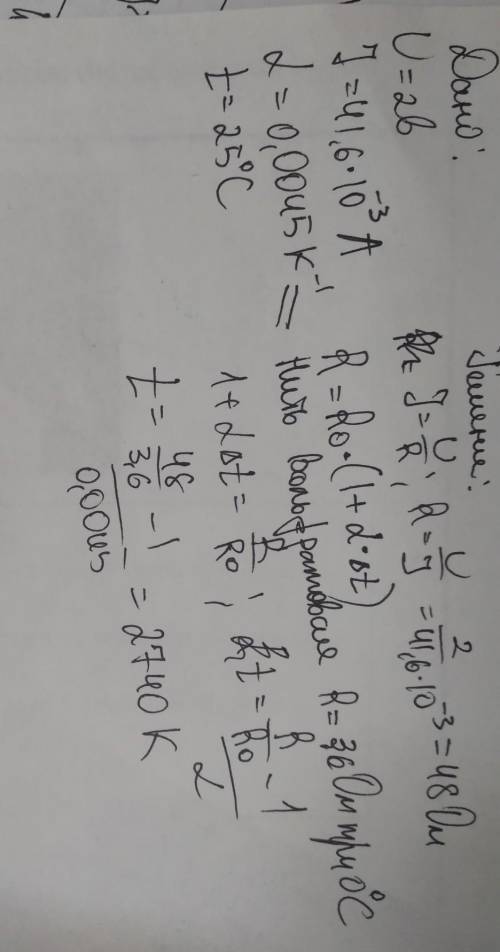 Дано:
U = 2в
J = 41,6·10⁻³ А
α = 0,0045 К⁻¹
t = 25°C
Решение:
J = U/R; R = U/J = 2/41,6·10⁻³ = 48 Ом
R = R₀·(1+α·Δt)
Нить вольфрамовая R = 36 Ом при 0°C
1+αΔt = R/R₀; t = (R/R₀ - 1)/α
t = (48/3,6 - 1)/0,0045 = 2740 К